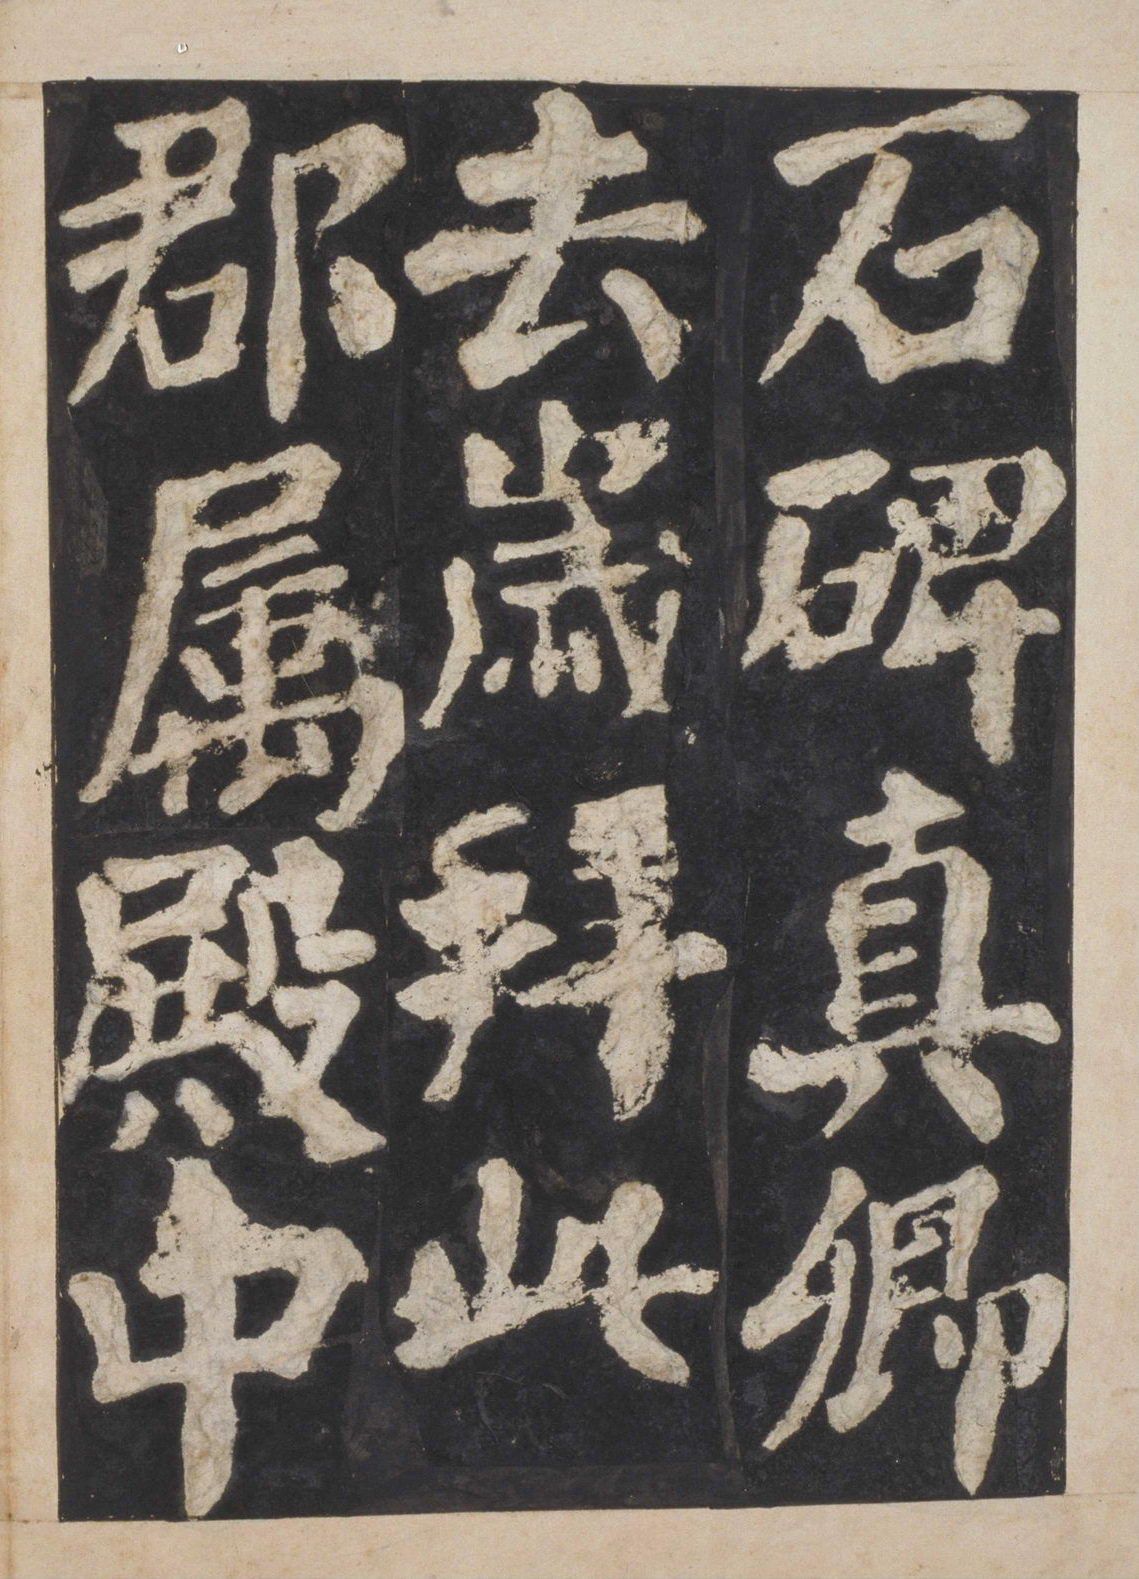 石碑真卿
去歳拜此
郡属殿中